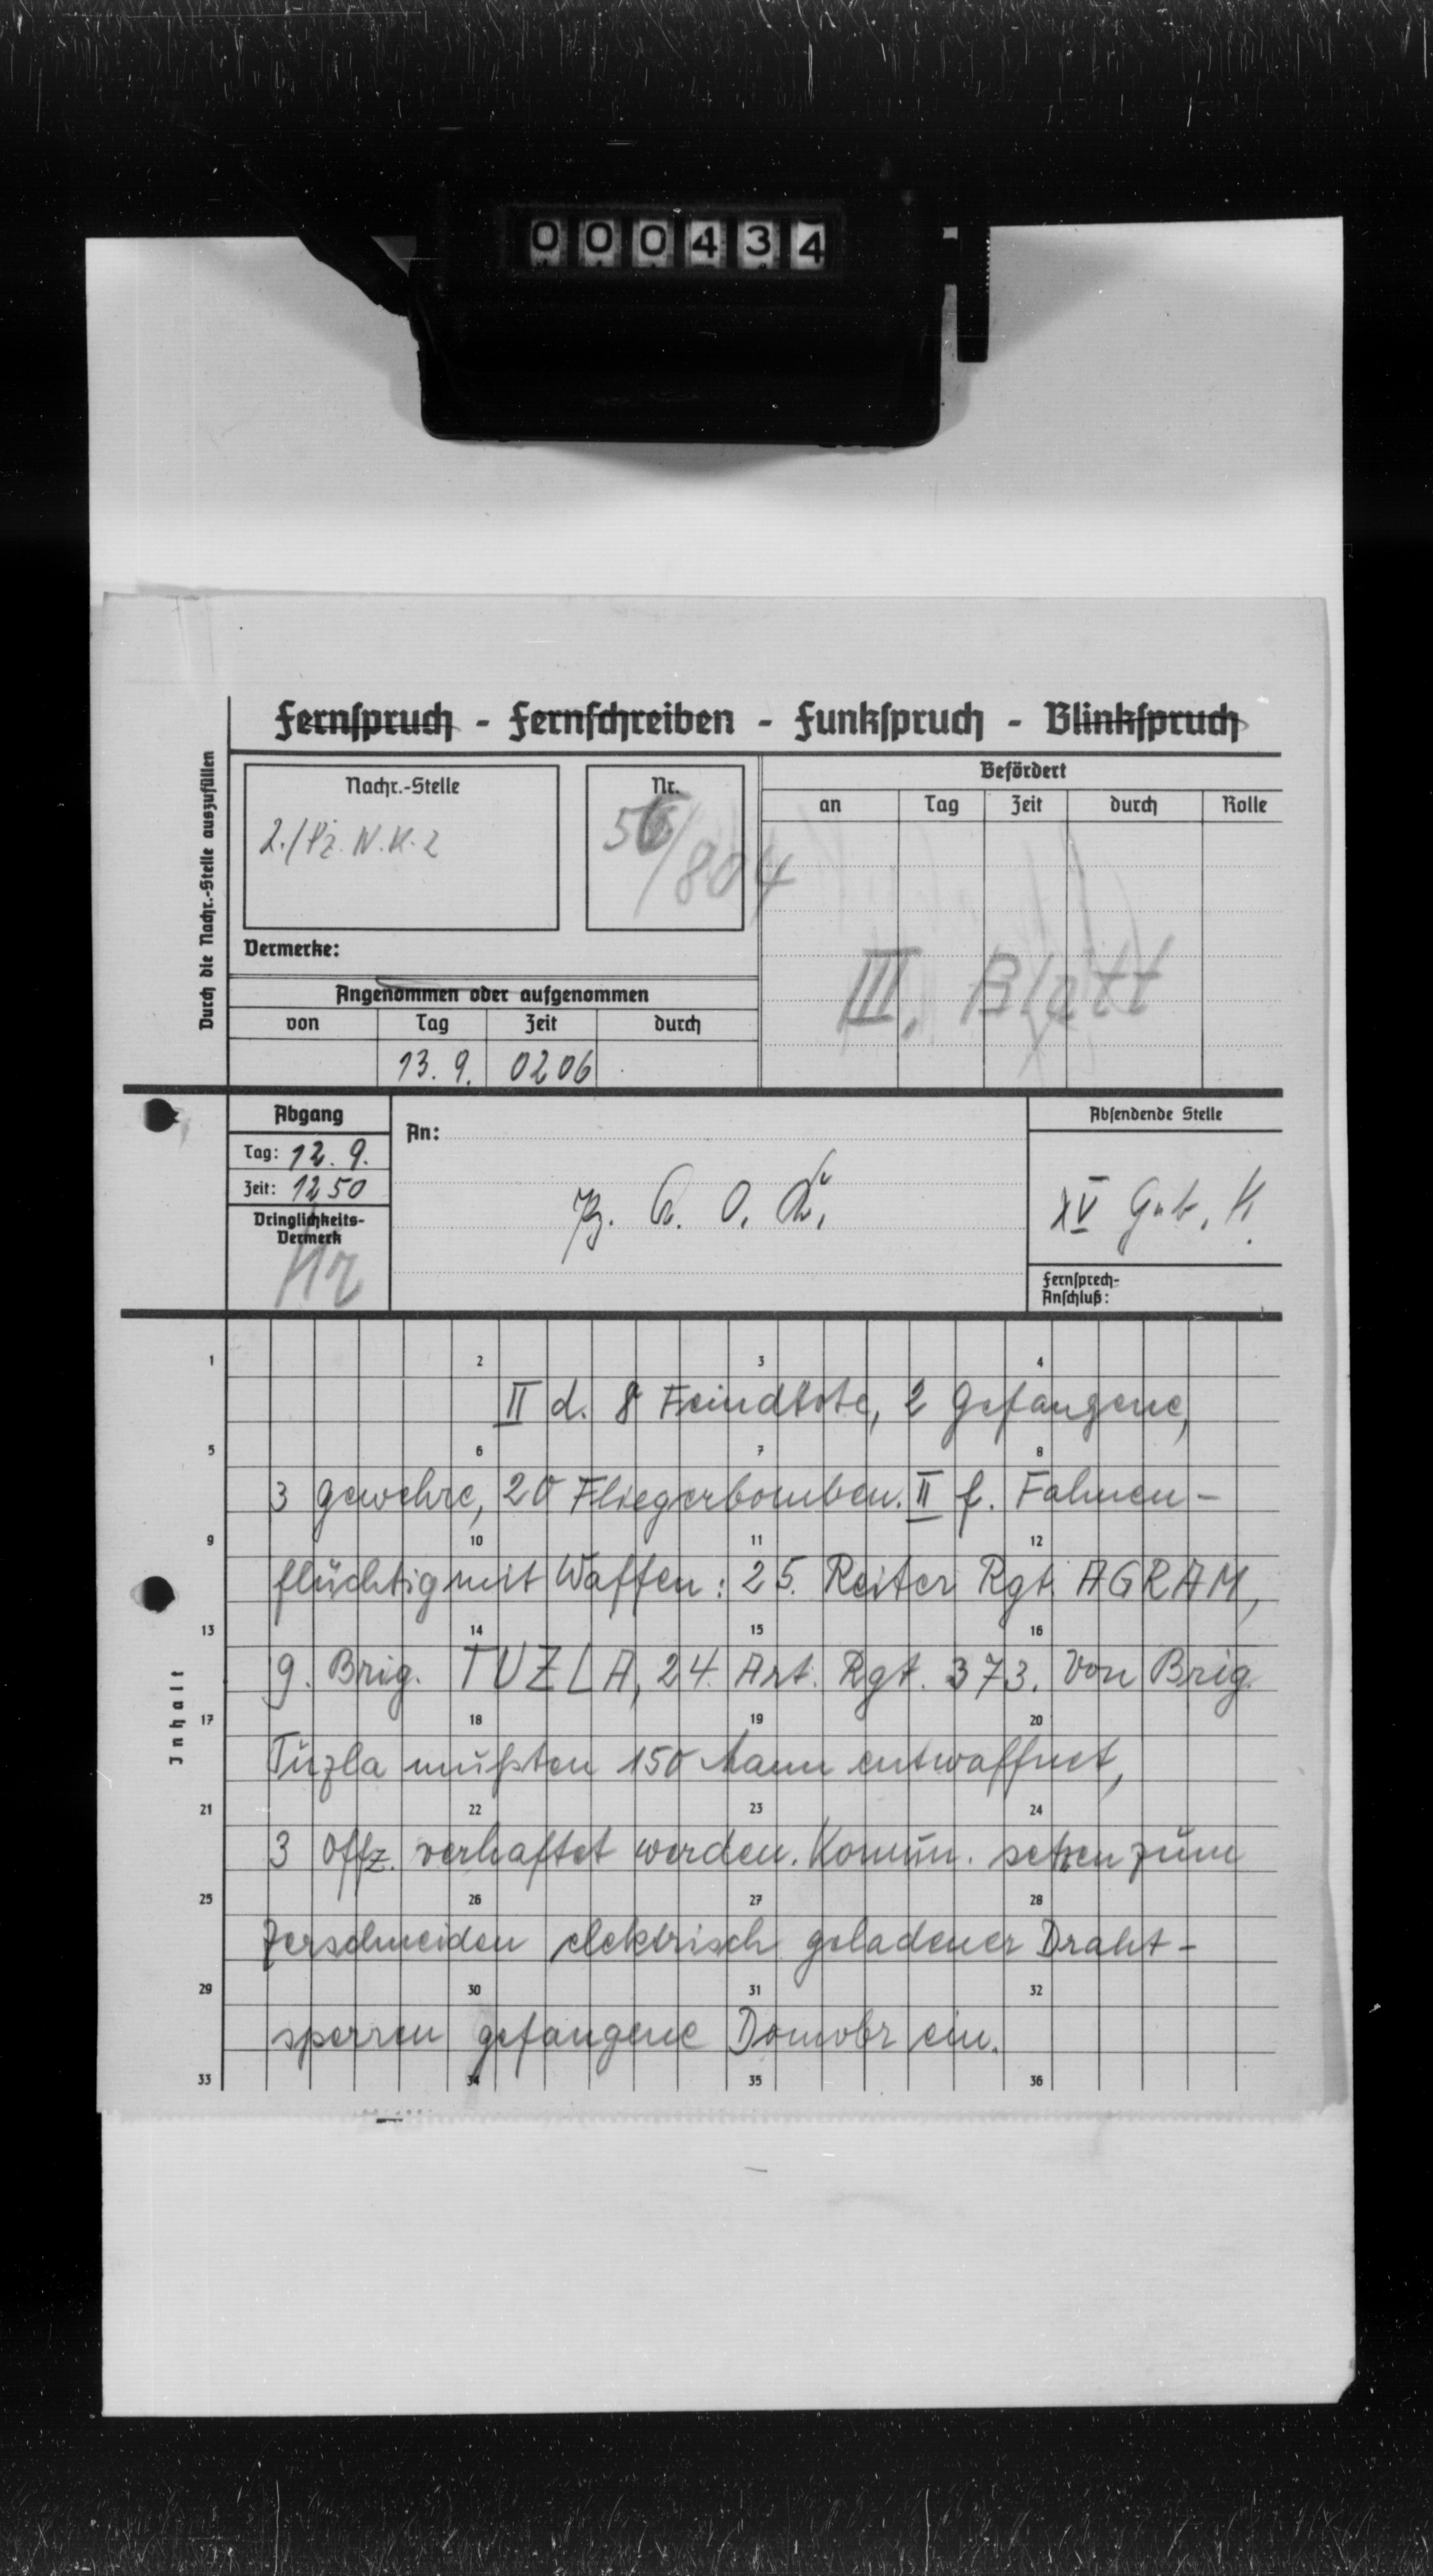 000434
Fernspruch - Fernschreiben - Funkspruch - Blinkspruch
Durch die Nachr.-Stelle auszufüllen
Nachr.-Stelle
2./Pz. N.K. 2
Nr.
56/804
Befördert
an Tag Zeit durch Rolle
Vermerke:
III. Blatt
Angenommen oder aufgenommen
von Tag Zeit durch
13. 9. 0206
Abgang
Tag: 12. 9.
Zeit: 1250
Dringlichkeits-
Vermerk
Kr
An:
Pz. A. O. K.
Absendende Stelle
XV Geb. K.
Fernsprech-
Anschluß:
Inhalt
1 2 3 4
II d. 8 Feindtote, 2 Gefangene,
5 6 7 8
3 Gewehre, 20 Fliegerbomben. II f. Fahnen-
9 10 11 12
flüchtig mit Waffen: 25. Reiter Rgt. AGRAM,
13 14 15 16
9. Brig. TUZLA, 24. Art. Rgt. 373. Von Brig.
17 18 19 20
Tuzla mußten 150 Mann entwaffnet,
21 22 23 24
3 Offz. verhaftet werden. Komun. setzen zum
25 26 27 28
Zerschneiden elektrisch geladener Draht-
29 30 31 32
sperren gefangene Domobr ein.
33 34 35 36